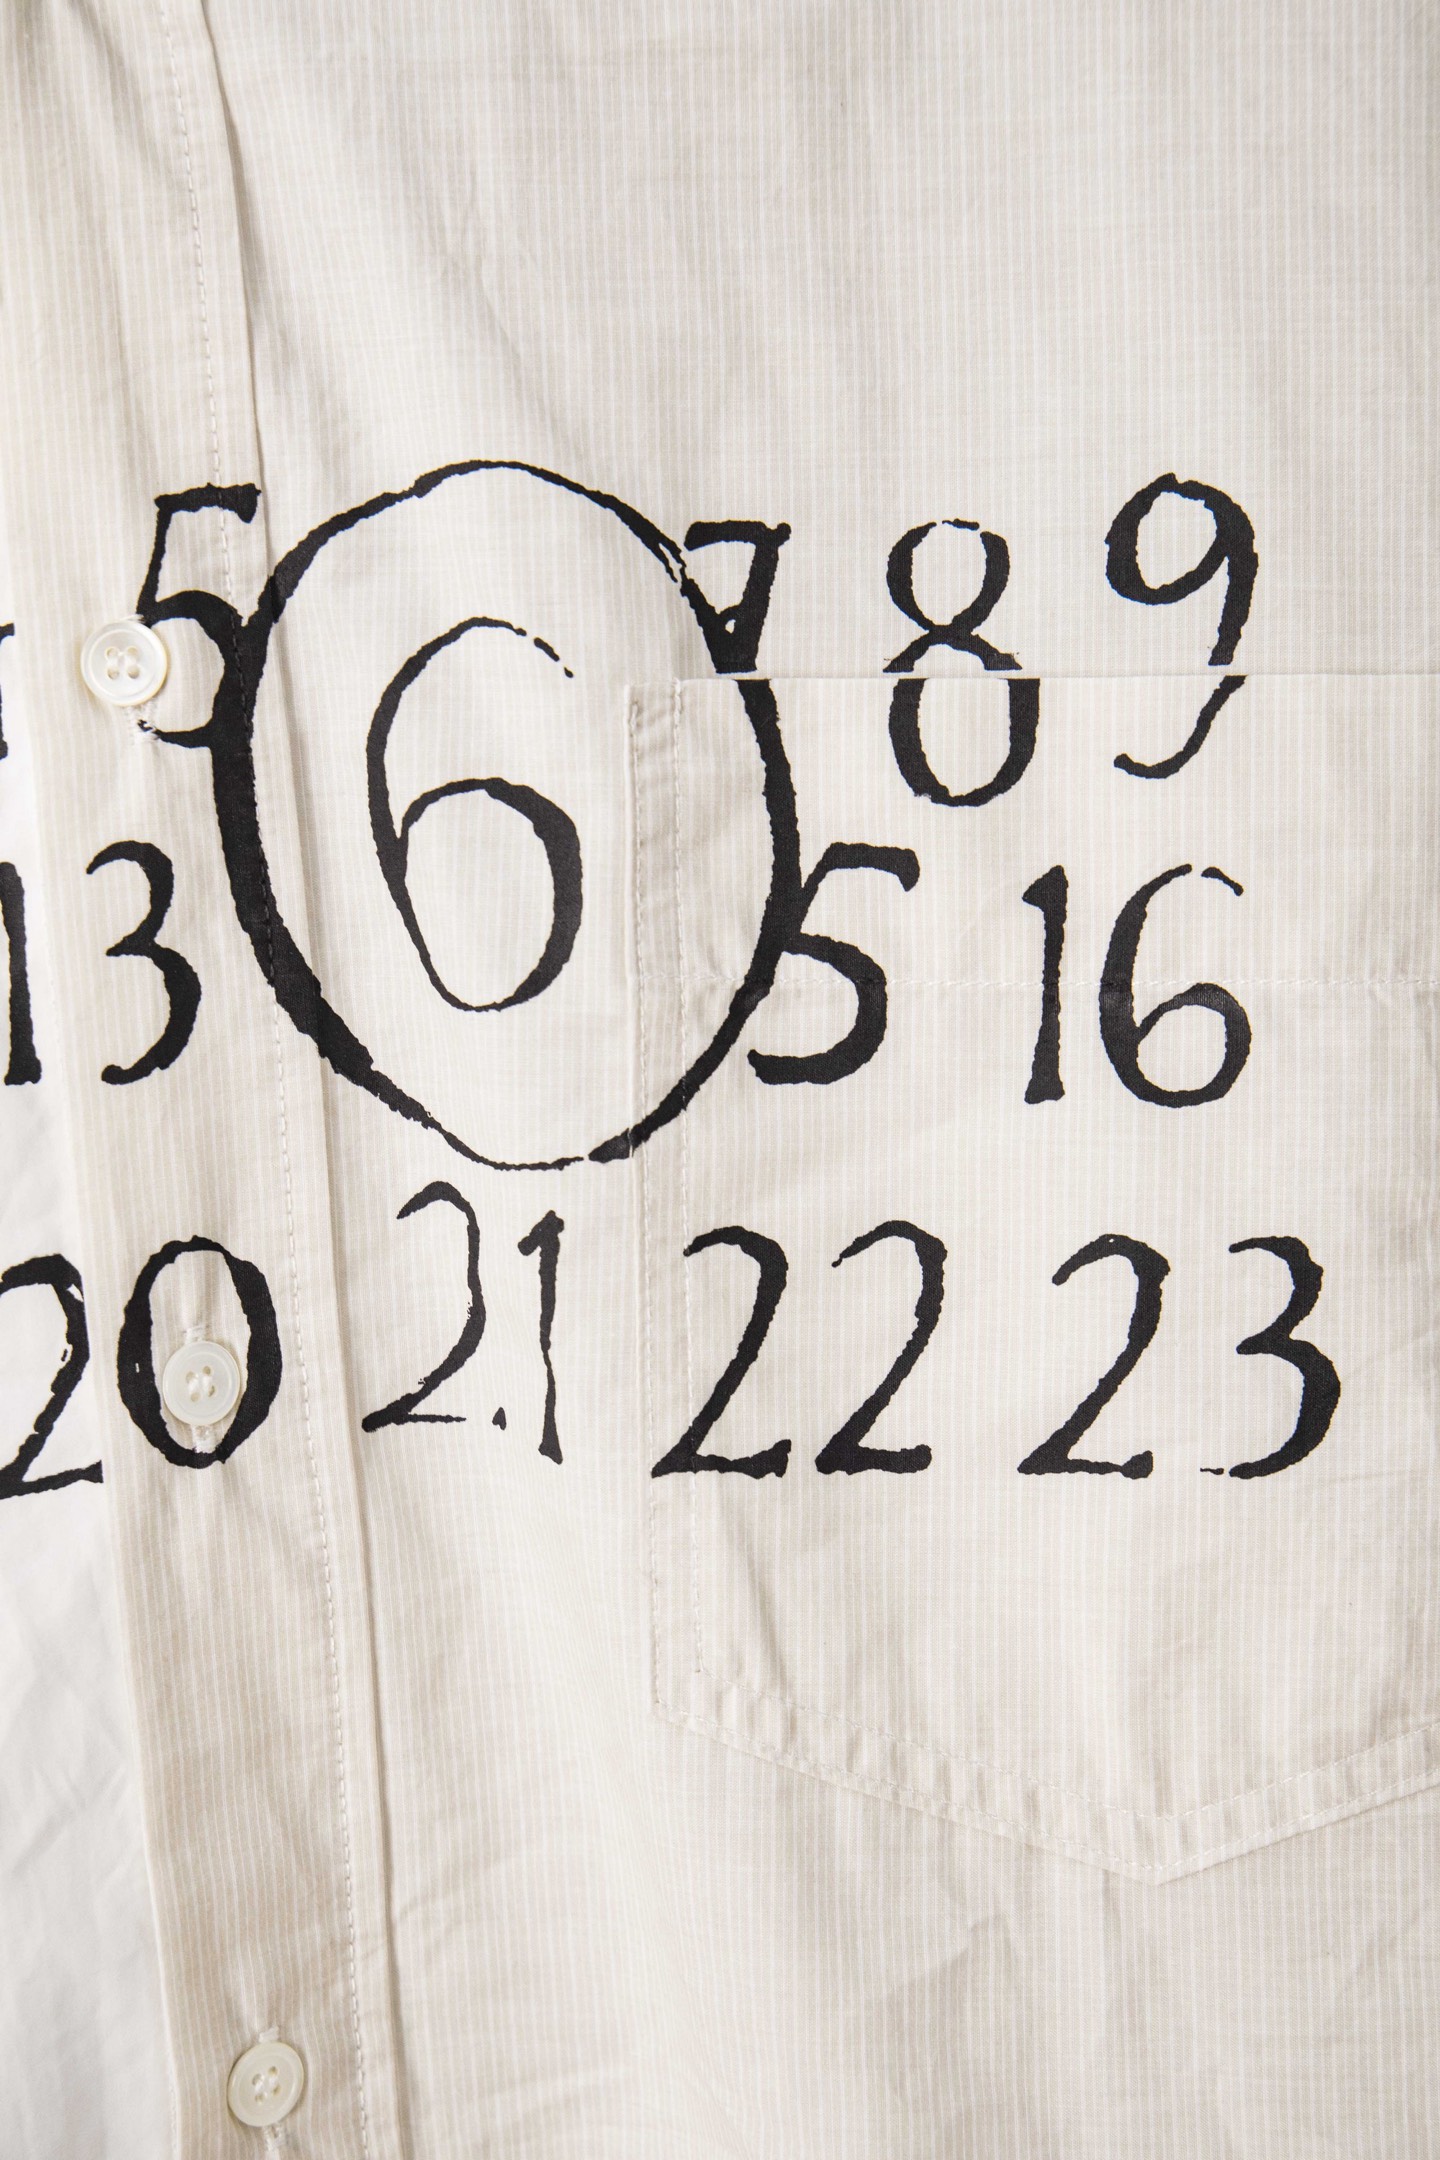 5 6 7 8 9
13 5 16
20 21 22 23